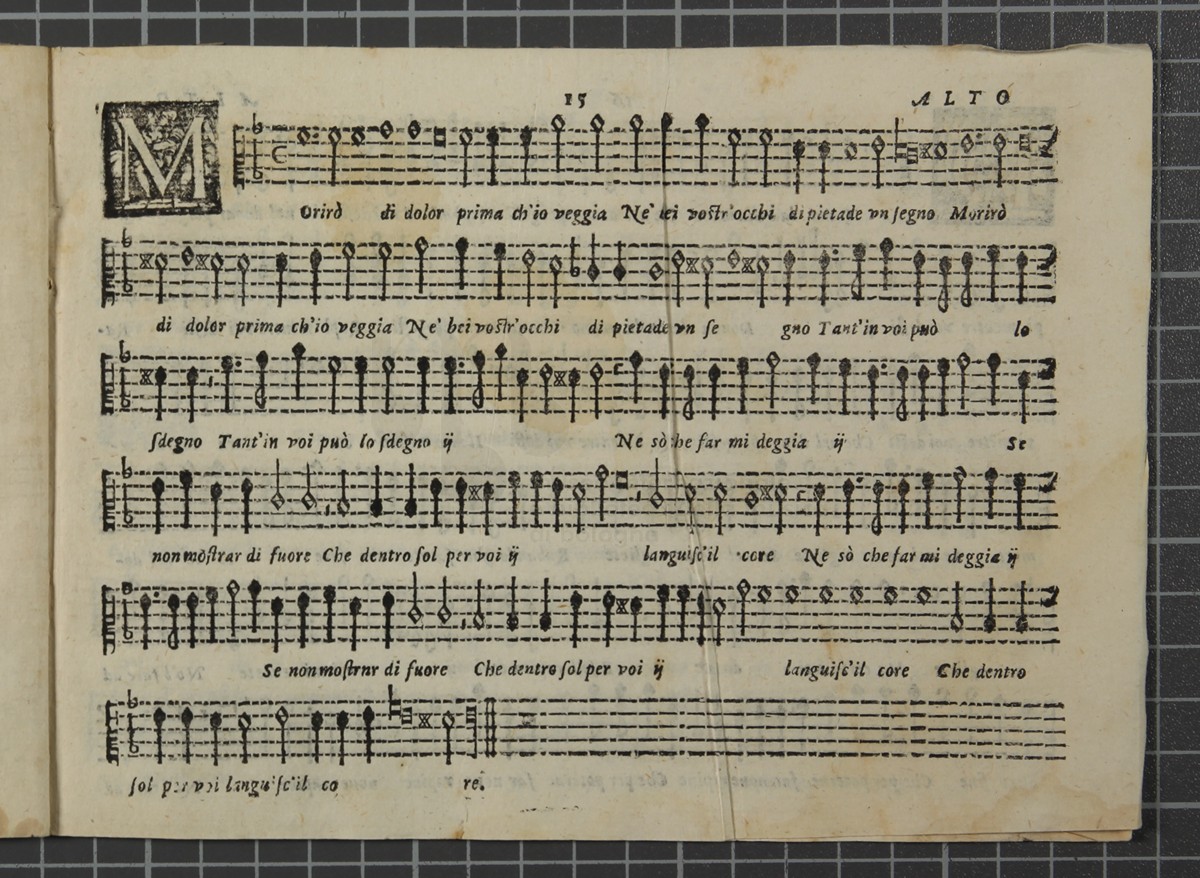 15 ALTO
M Orirò di dolor prima ch'io veggia Ne' bei vostr'occhi di pietade vn segno Morirò
di dolor prima ch'io veggia Ne' bei vostr'occhi di pietade vn se gno Tant'in voi può lo
sdegno Tant'in voi può lo sdegno ij Ne sò che far mi deggia ij Se
non mostrar di fuore Che dentro sol per voi ij languisc'il core Ne sò che far mi deggia ij
Se non mostrnr di fuore Che dentro sol per voi ij languisc'il core Che dentro
sol per voi languisc'il co re.